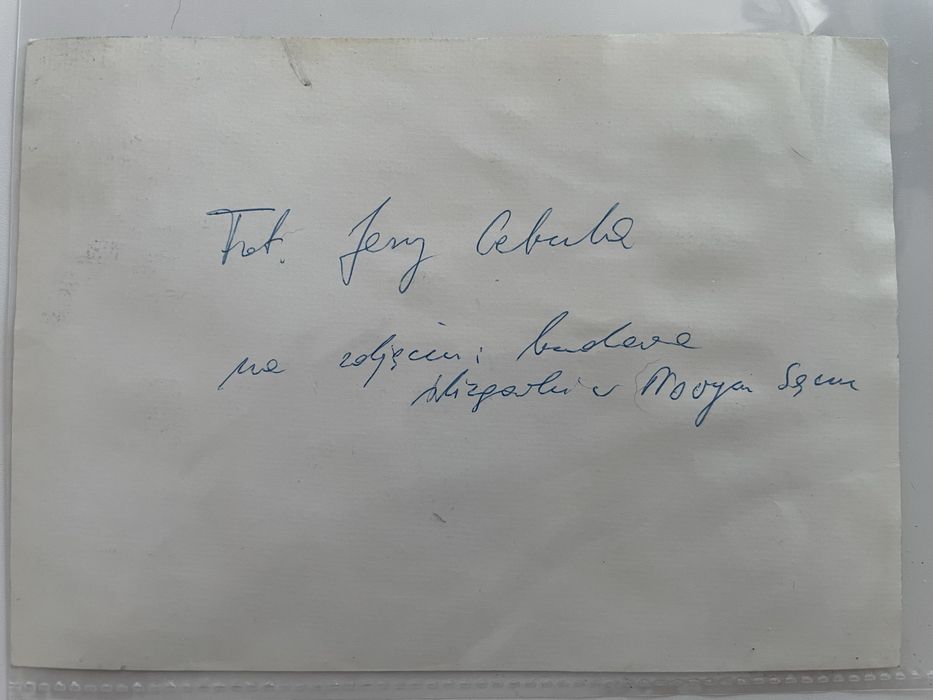 Fot. Jerzy Cebula
na zdjęciu: budowa
ślizgawki w Nowym Sączu